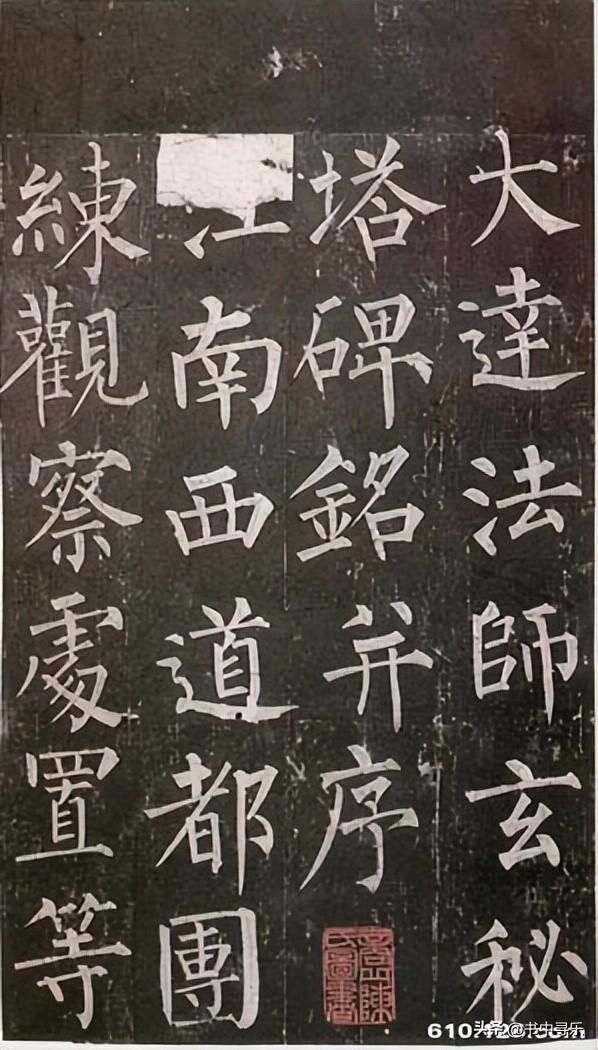 大達法師玄秘
塔碑銘并序
江南西道都團
練觀察處置等
头条@书中寻乐